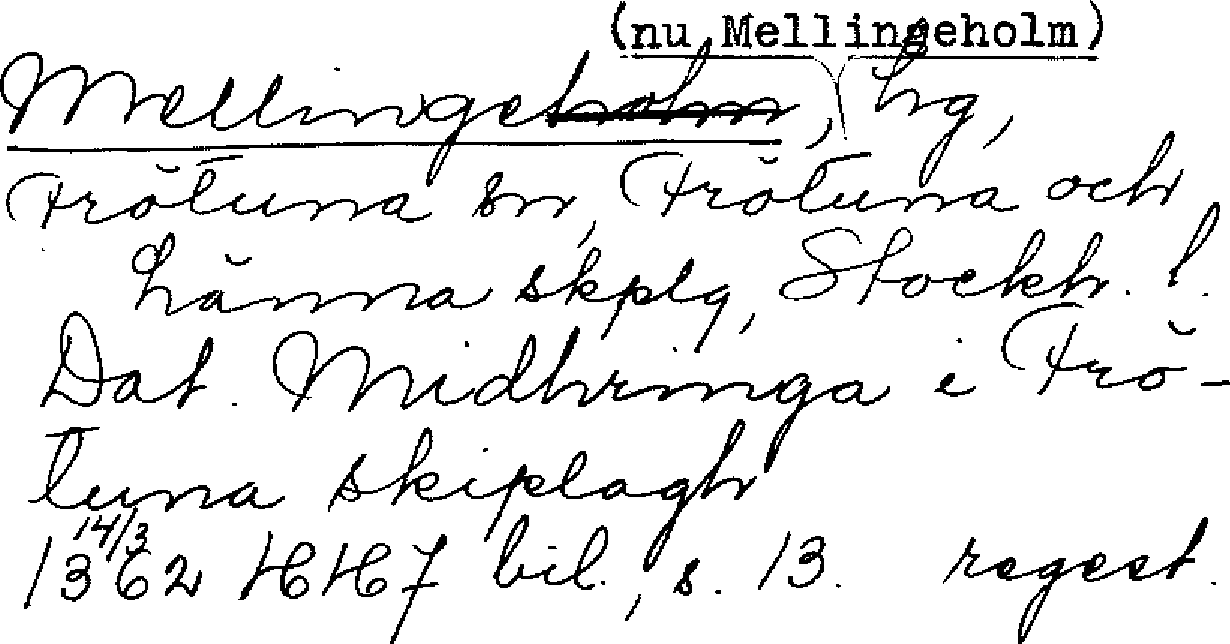 (nu Mellingeholm)
Mellingeholm, hg,
Frötuna sn, Frötuna och
Länna skplg, Stockh. l.
Dat. Midhringa i Frö-
tuna skiplagh
14/3
1362 HH 7 bil., s. 13. regest.